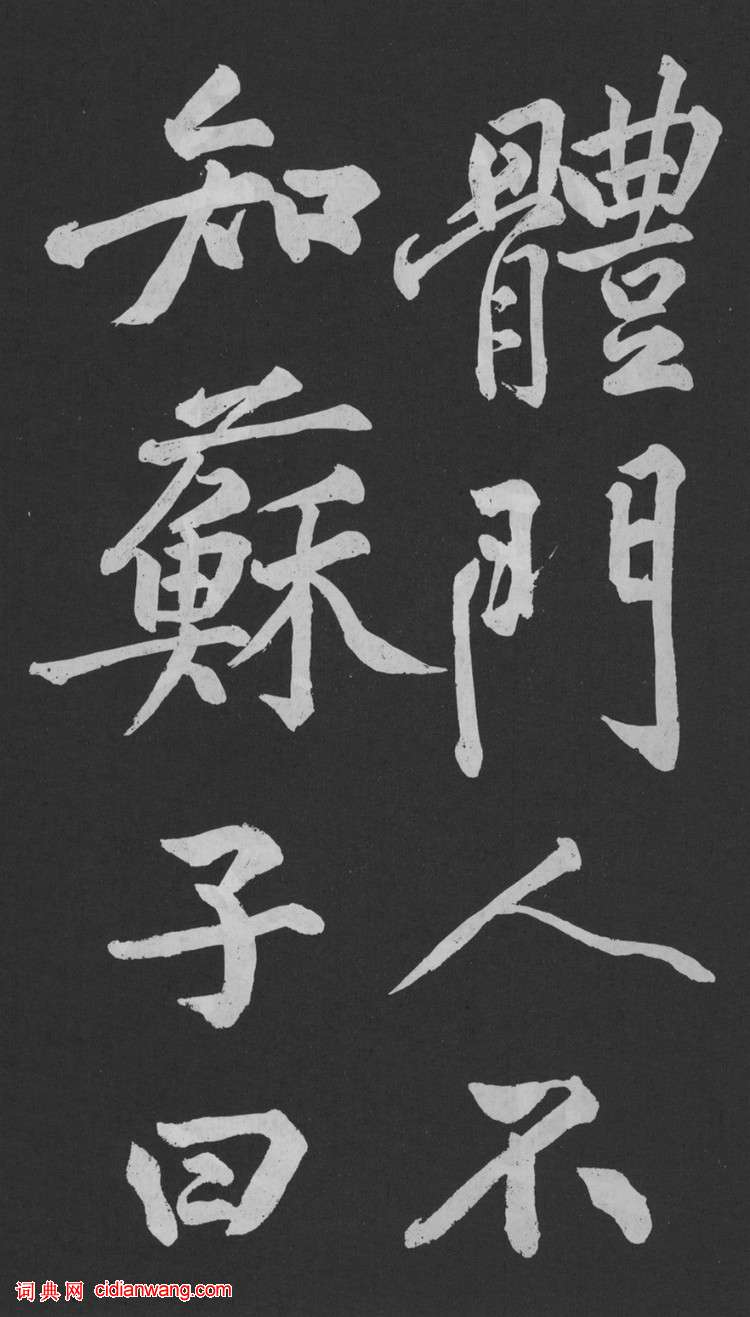 體門人不
知蘇子曰
词典网 cidianwang.com